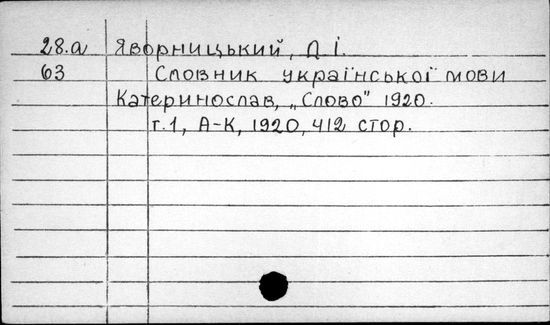 28.а Яворницький, Д І.
63 Словник української мови
Катеринослав, „Слово" 1920.
т.1, А-К, 1920, 412 стор.